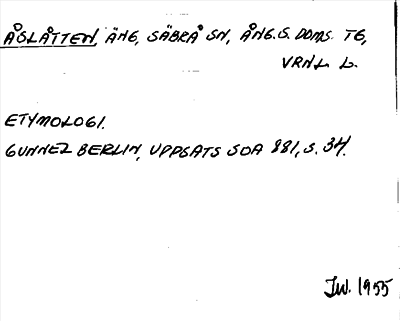 ÅSLÅTTEN, ÄNG, SÄBRÅ SN, ÅNG.S. DOMS. TG,
VRNL L.
ETYMOLOGI.
GUNNEL BERLIN, UPPSATS SOA 881, S. 34.
JW. 1955